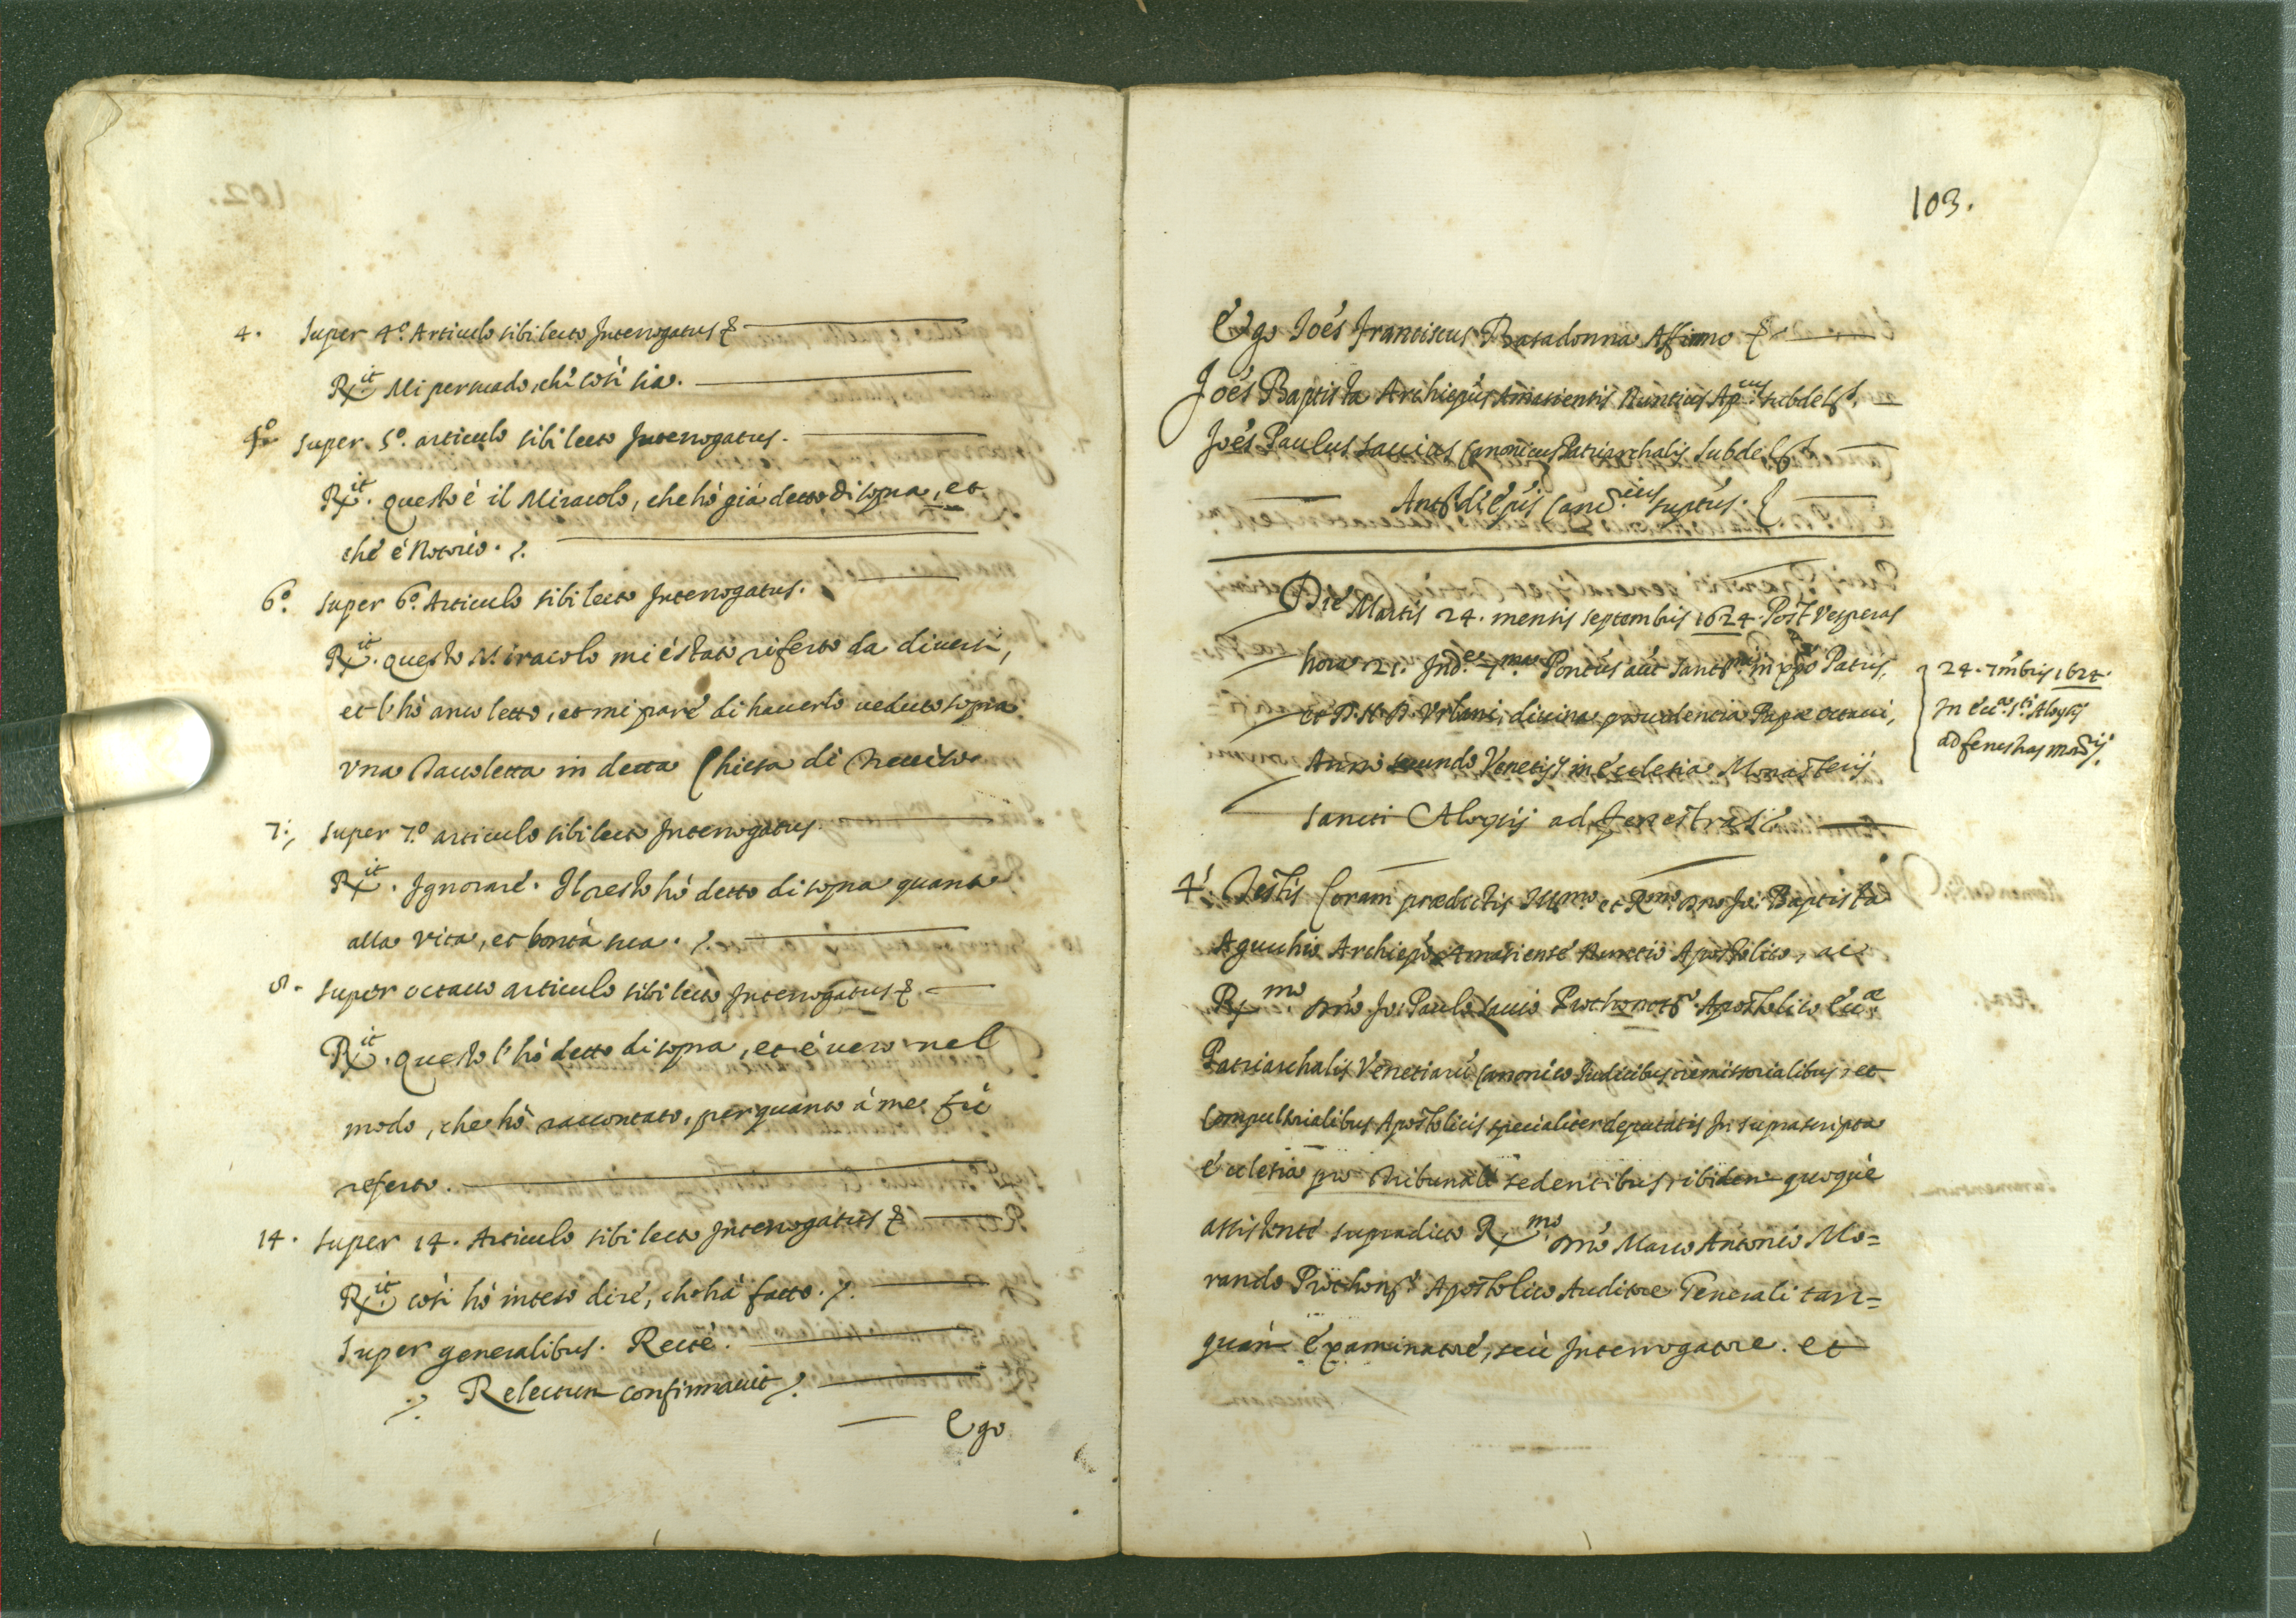 4. Super 4.º Articulo sibi lecto Interrogatus &
R.it Mi persuado, che così sia.
5º super 5º. articulo sibi lecto Interrogatus.
R.it. questo è il Miracolo, che hò già detto di sopra, et
che è Notorio.
6.º super 6.º Articulo sibi lecto Interrogatus.
R.it. questo Miracolo mi è stato riferto da diversi,
et l'hò anco letto, et mi pare di haverlo veduto sopra
una Tavoletta in detta Chiesa di
7. super 7.º articulo sibi lecto Interrogatus.
R.it. Ignorare. Il resto hò detto di sopra quanto
alla vita, et bontà sua.
8. super octavo articulo sibi lecto Interrogatus &
R.it. questo l'hò detto di sopra, et è vero nel
modo, che hò raccontato, per quanto à me fù
referto.
14. super 14. Articulo sibi lecto Interrogatus &
R.it così hò inteso dire, che hà fatto.
super generalibus. Recte.
Relectum confirmavit
Ego
103.
Ego Joẽs Franciscus Basadonna Affirmo &
Joẽs Baptista Archiepũs Amasiensis Nuntius Ap.cus subdel.s
Joẽs Paulus Savius Canonicus Patriarchalis subdel.s
Die Martis 24. mensis septembris 1624. Post Vesperas
hora 21. Ind.e 7.ma Pontũs aũt Sanct.mi in xp̃o Patris,
et D. N. D. Urbani, divina providentia Papæ octavi,
Anno secundo Venetijs in Ecclesia Monasterij
sancti Aloysij ad fenestras
24. 7mbris 1624
In Ecc.a s.ti Aloysij
ad fenestras
4. Testis Coram prædictis Ill.mo et R.mo Dno Jo: Baptista
Agucchio Archiepõ Amasiense Nuntio Apostolico, ac
R.mo Dno Jo: Paulo Savio Prothonot.o Apostolico Ecc.æ
Patriarchalis Venetiarũ Canonico Iudicibus remissorialibus, et
Compulsorialibus Apostolicis specialiter deputatis In suprascripta
Ecclesia pro Tribunali sedentibus, ibidem quoque
assistente supradicto R.mo Dno Marco Antonio Mo=
rando Prothon.o Apostolico Auditore Generali tan=
quam Examinatore, seu Interrogatore. et